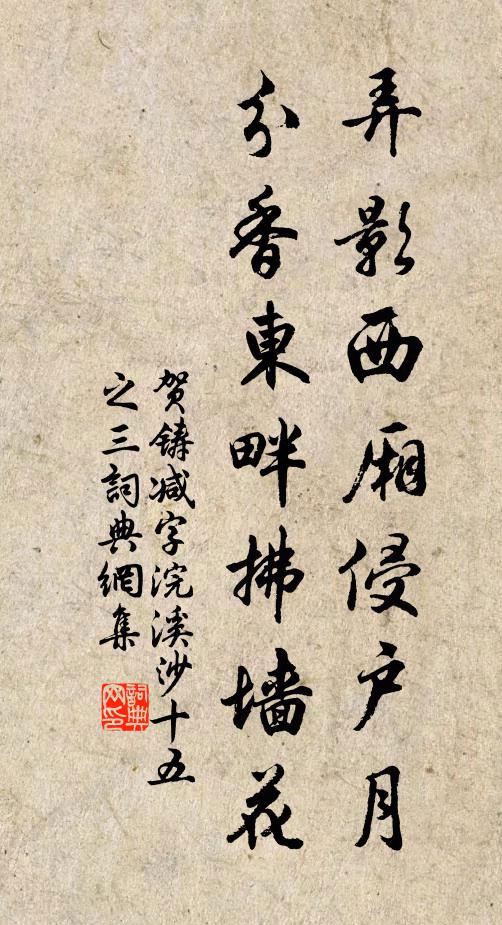 弄影西厢侵户月
分香東畔拂墙花
贺铸减字浣溪沙十五
之三詞典網集
詞典网印